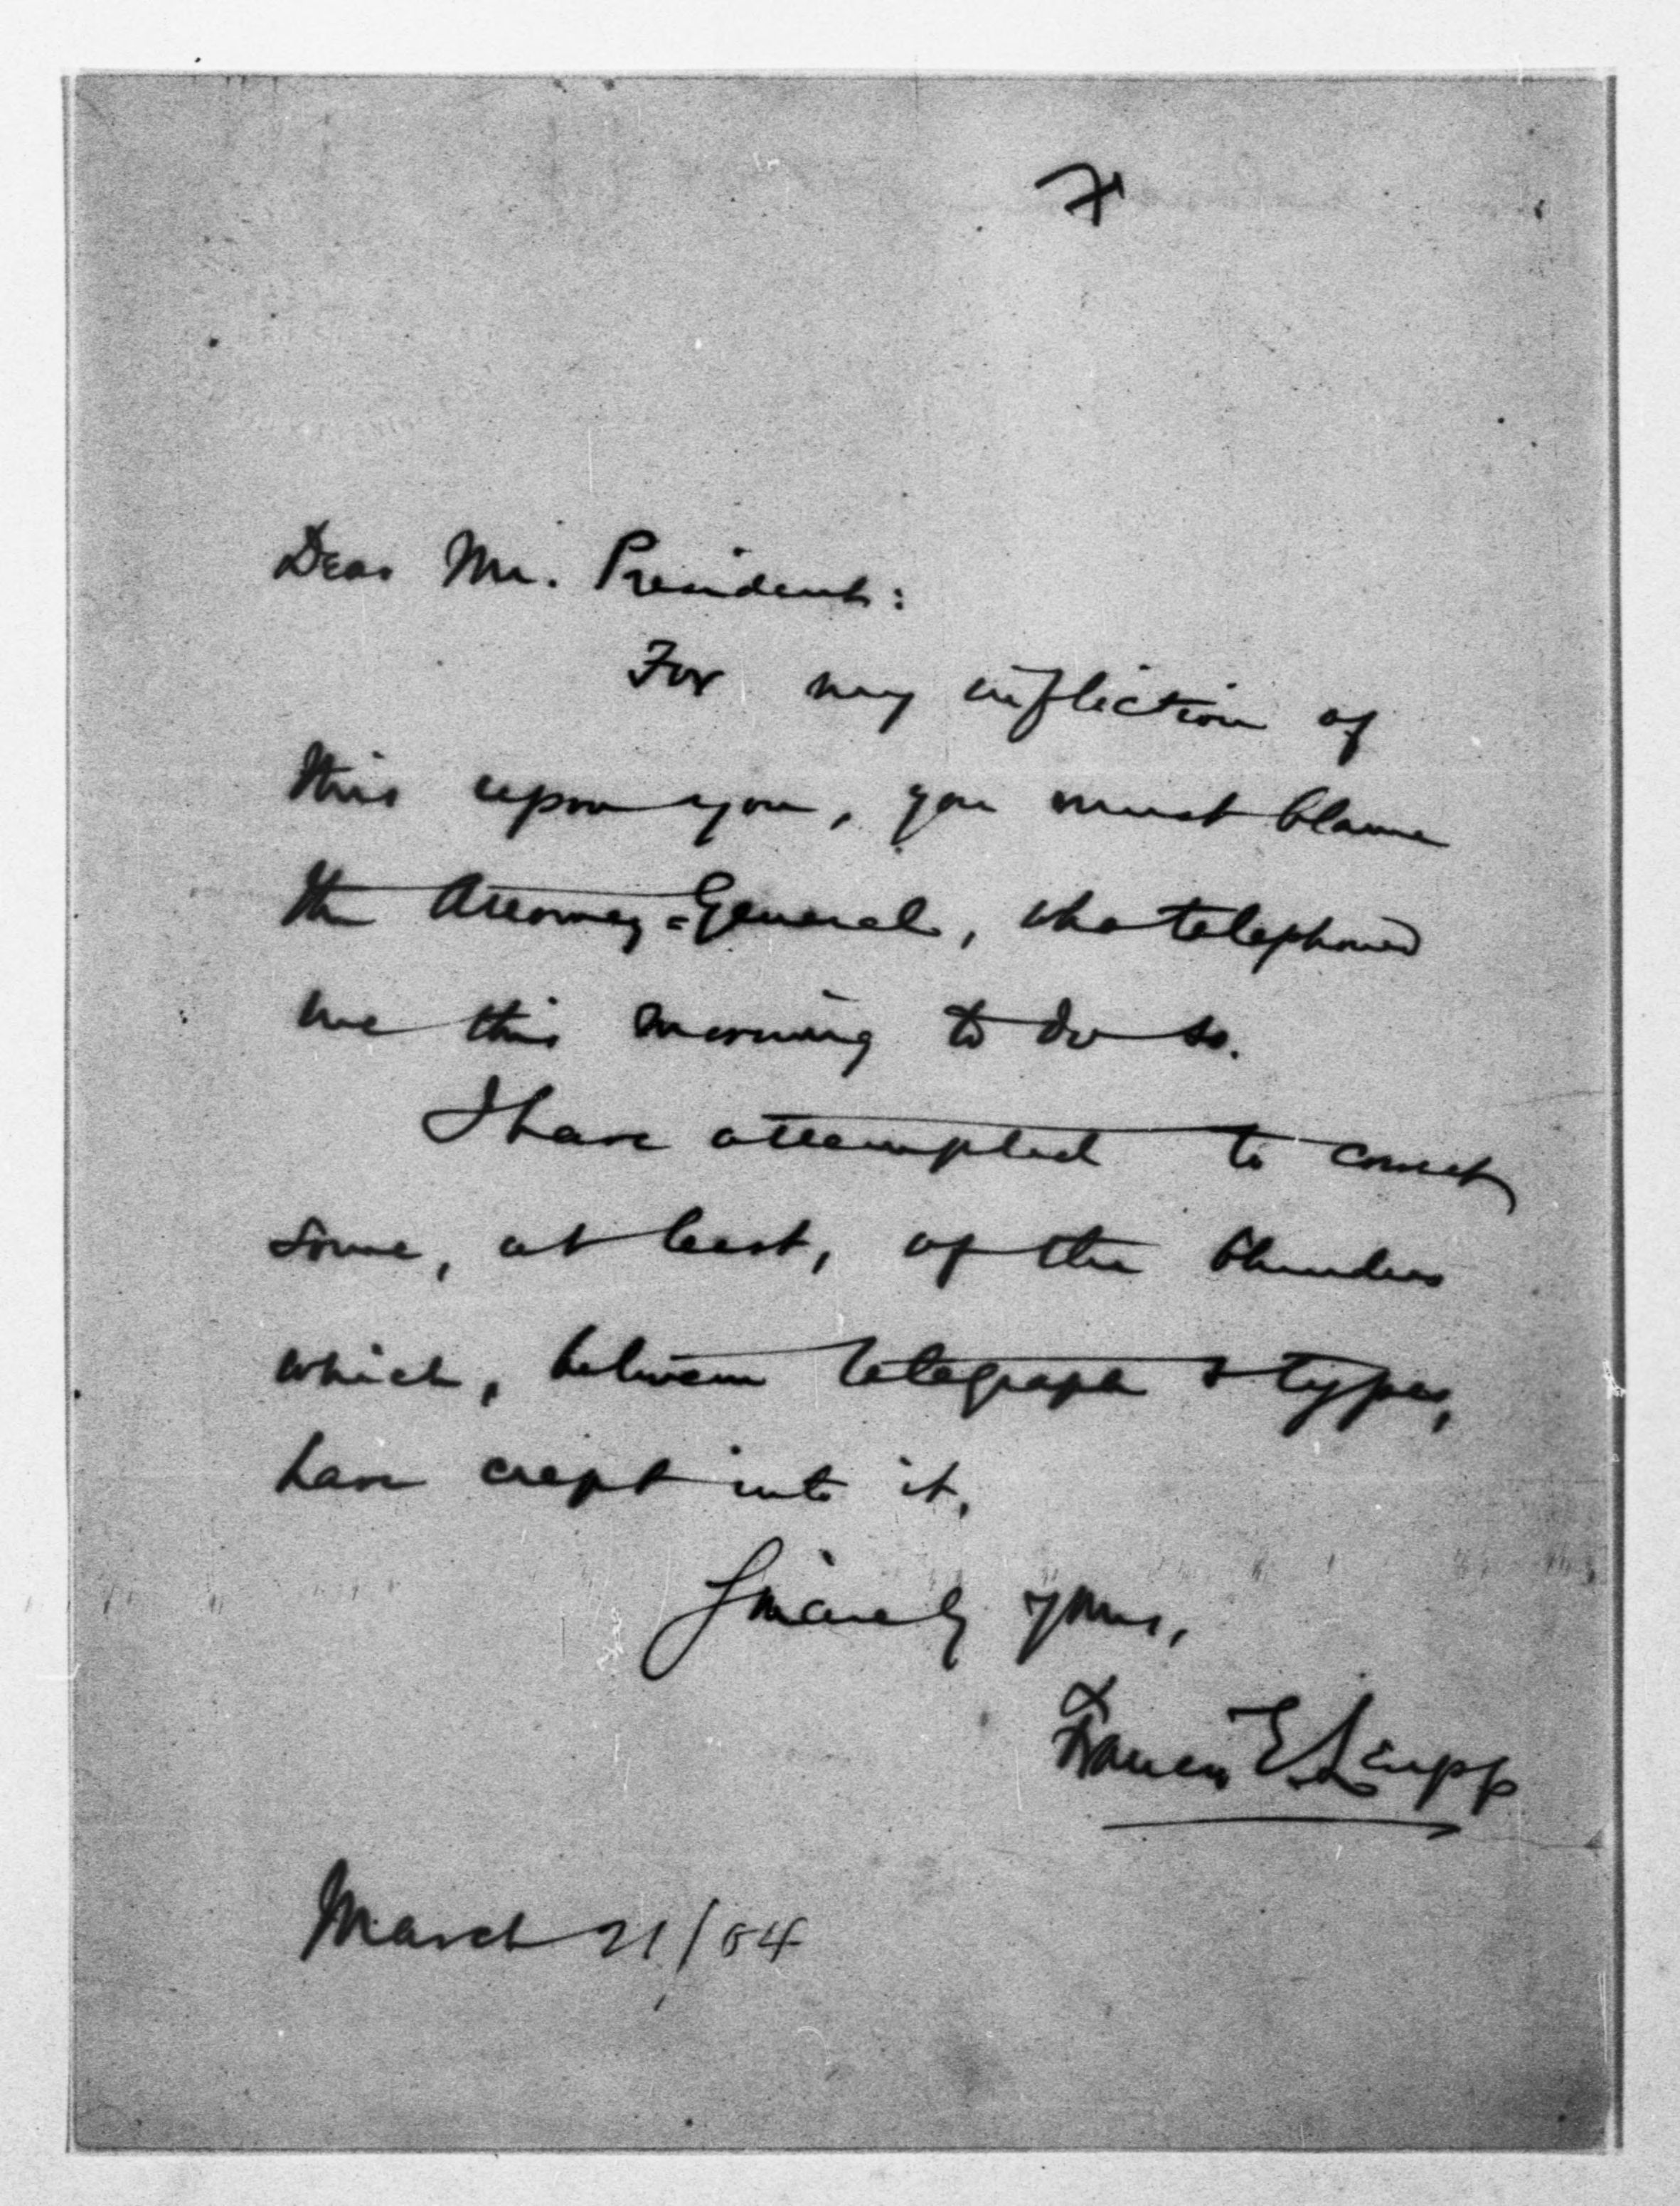 Dear Mr. President:
For my infliction of
this upon you, you must blame
the Attorney-General, who telephoned
me this morning to do so.
I have attempted to correct
some, at least, of the blunders
which, between telegraph & types,
have crept into it.
Sincerely yours,
Francis E. Leupp
March 21/04